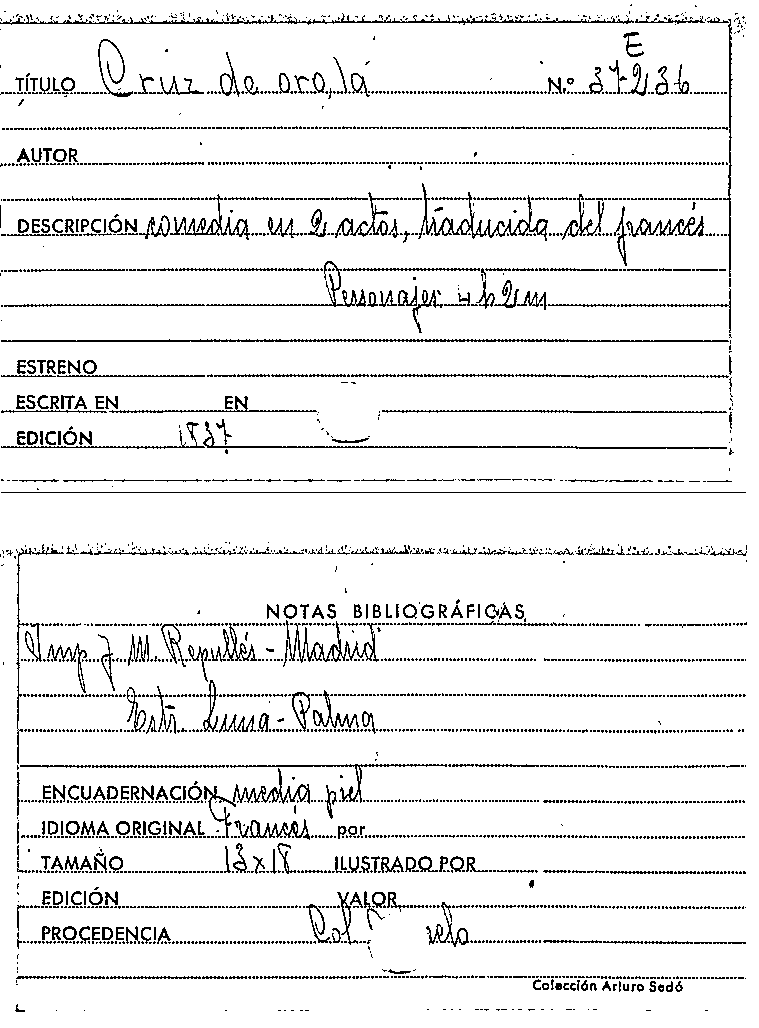 E
TÍTULO Cruz de oro, la N.º 37236
AUTOR
DESCRIPCIÓN comedia en 2 actos, traducida del francés
Personajes 4 h 2 m
ESTRENO
ESCRITA EN EN
EDICIÓN 1837
NOTAS BIBLIOGRÁFICAS
Imp J. M. Repullés - Madrid
Estr. Luna - Palma
ENCUADERNACIÓN media piel
IDIOMA ORIGINAL Francés por
TAMAÑO 13 x 18 ILUSTRADO POR
EDICIÓN VALOR
PROCEDENCIA Col
Colección Arturo Sedó